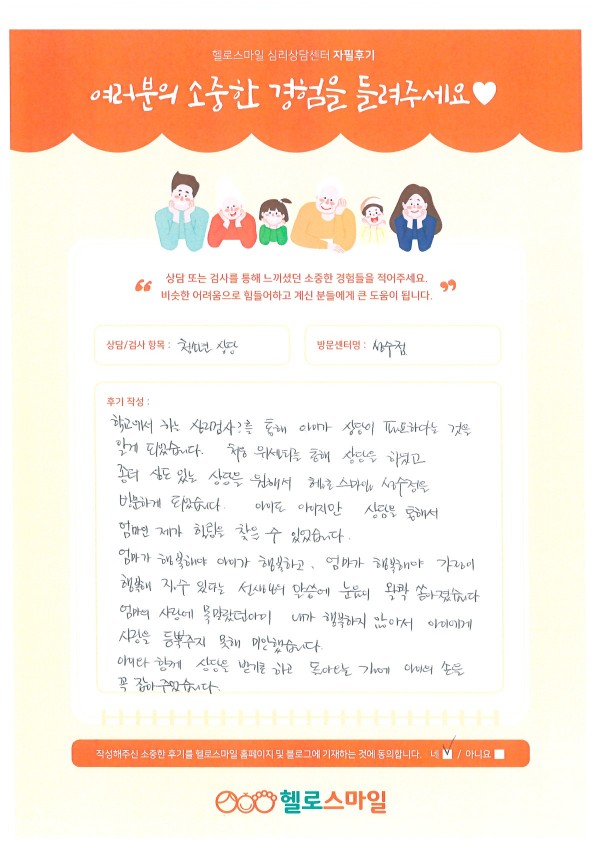 헬로스마일 심리상담센터 자필후기
여러분의 소중한 경험을 들려주세요♥
“ 상담 또는 검사를 통해 느끼셨던 소중한 경험들을 적어주세요.
비슷한 어려움으로 힘들어하고 계신 분들에게 큰 도움이 됩니다. ”
상담/검사 항목 : 청소년 상담
방문센터명 : 성수점
후기 작성 :
학교에서 하는 심리검사?를 통해 아이가 상담이 필요하다는 것을
알게 되었습니다. 처음 위센터를 통해 상담을 하였고
좀더 심도 있는 상담을 원해서 헬로스마일 성수점을
방문하게 되었습니다. 아이도 아이지만 상담을 통해서
엄마인 제가 힐링을 찾을 수 있었습니다.
엄마가 행복해야 아이가 행복하고, 엄마가 행복해야 가정이
행복해 질 수 있다는 선생님의 말씀에 눈물이 왈콱 쏟아졌습니다
엄마의 사랑에 목말랐던아이 내가 행복하지 않아서 아이에게
사랑을 듬뿍주지 못해 미안했습니다.
아이와 함께 상담을 받기로 하고 돌아오는 길에 아이의 손을
꼭 잡아주었습니다.
작성해주신 소중한 후기를 헬로스마일 홈페이지 및 블로그에 기재하는 것에 동의합니다. 네 ☑ / 아니요 ☐
헬로스마일